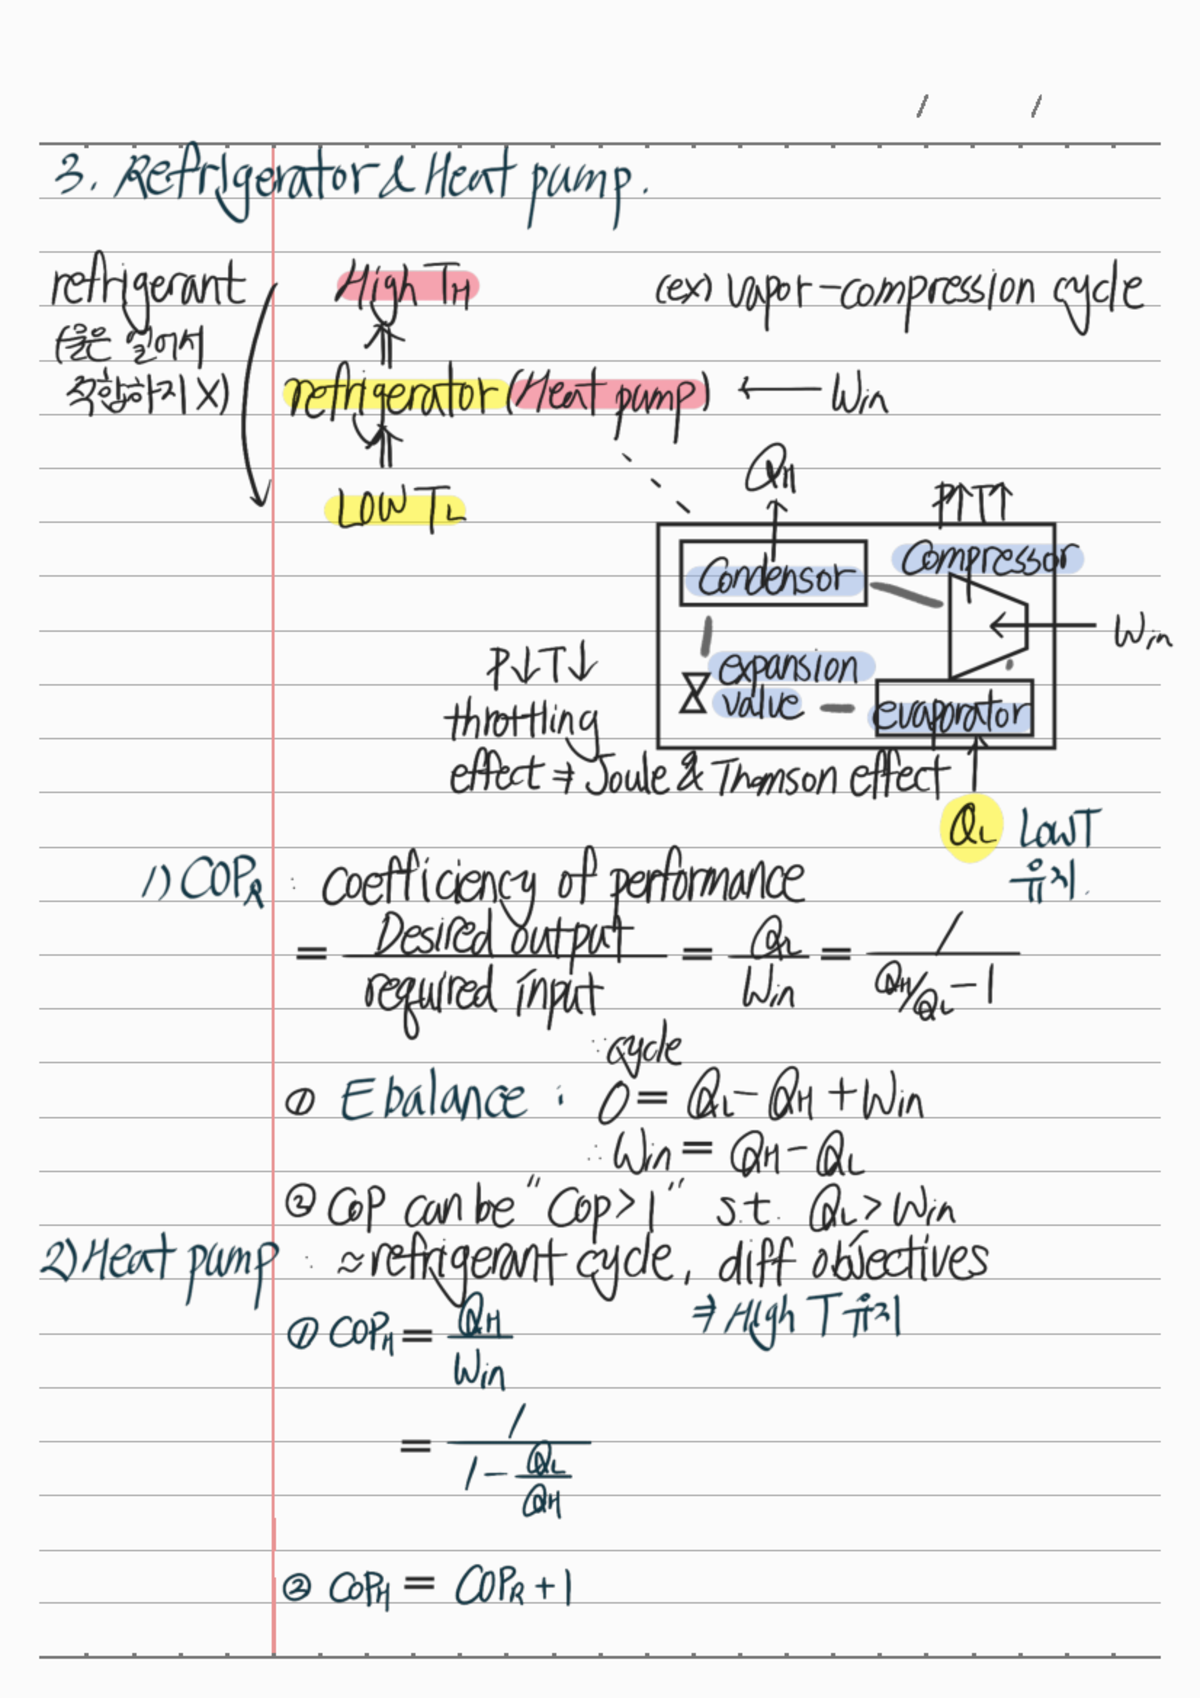 / /
3. Refrigerator & Heat pump.
refrigerant
(물은 얼어서
적합하지 X)
High TH
refrigerator (Heat pump) ← Win
LOW TL
(ex) vapor-compression cycle
QH
P↑T↑
Condensor
Compressor
Win
expansion
value
evaporator
P↓T↓
throttling
effect ⇒ Joule & Thomson effect
QL LOWT
유지.
1) COPR : Coefficiency of performance
= Desired output / required input = QL / Win = 1 / (QH/QL - 1)
∵ cycle
① E balance : 0 = QL - QH + Win
∴ Win = QH - QL
② COP can be "Cop > 1" s.t. QL > Win
2) Heat pump : ≈ refrigerant cycle, diff objectives
⇒ High T 유지
① COPH = QH / Win
= 1 / (1 - QL/QH)
② COPH = COPR + 1